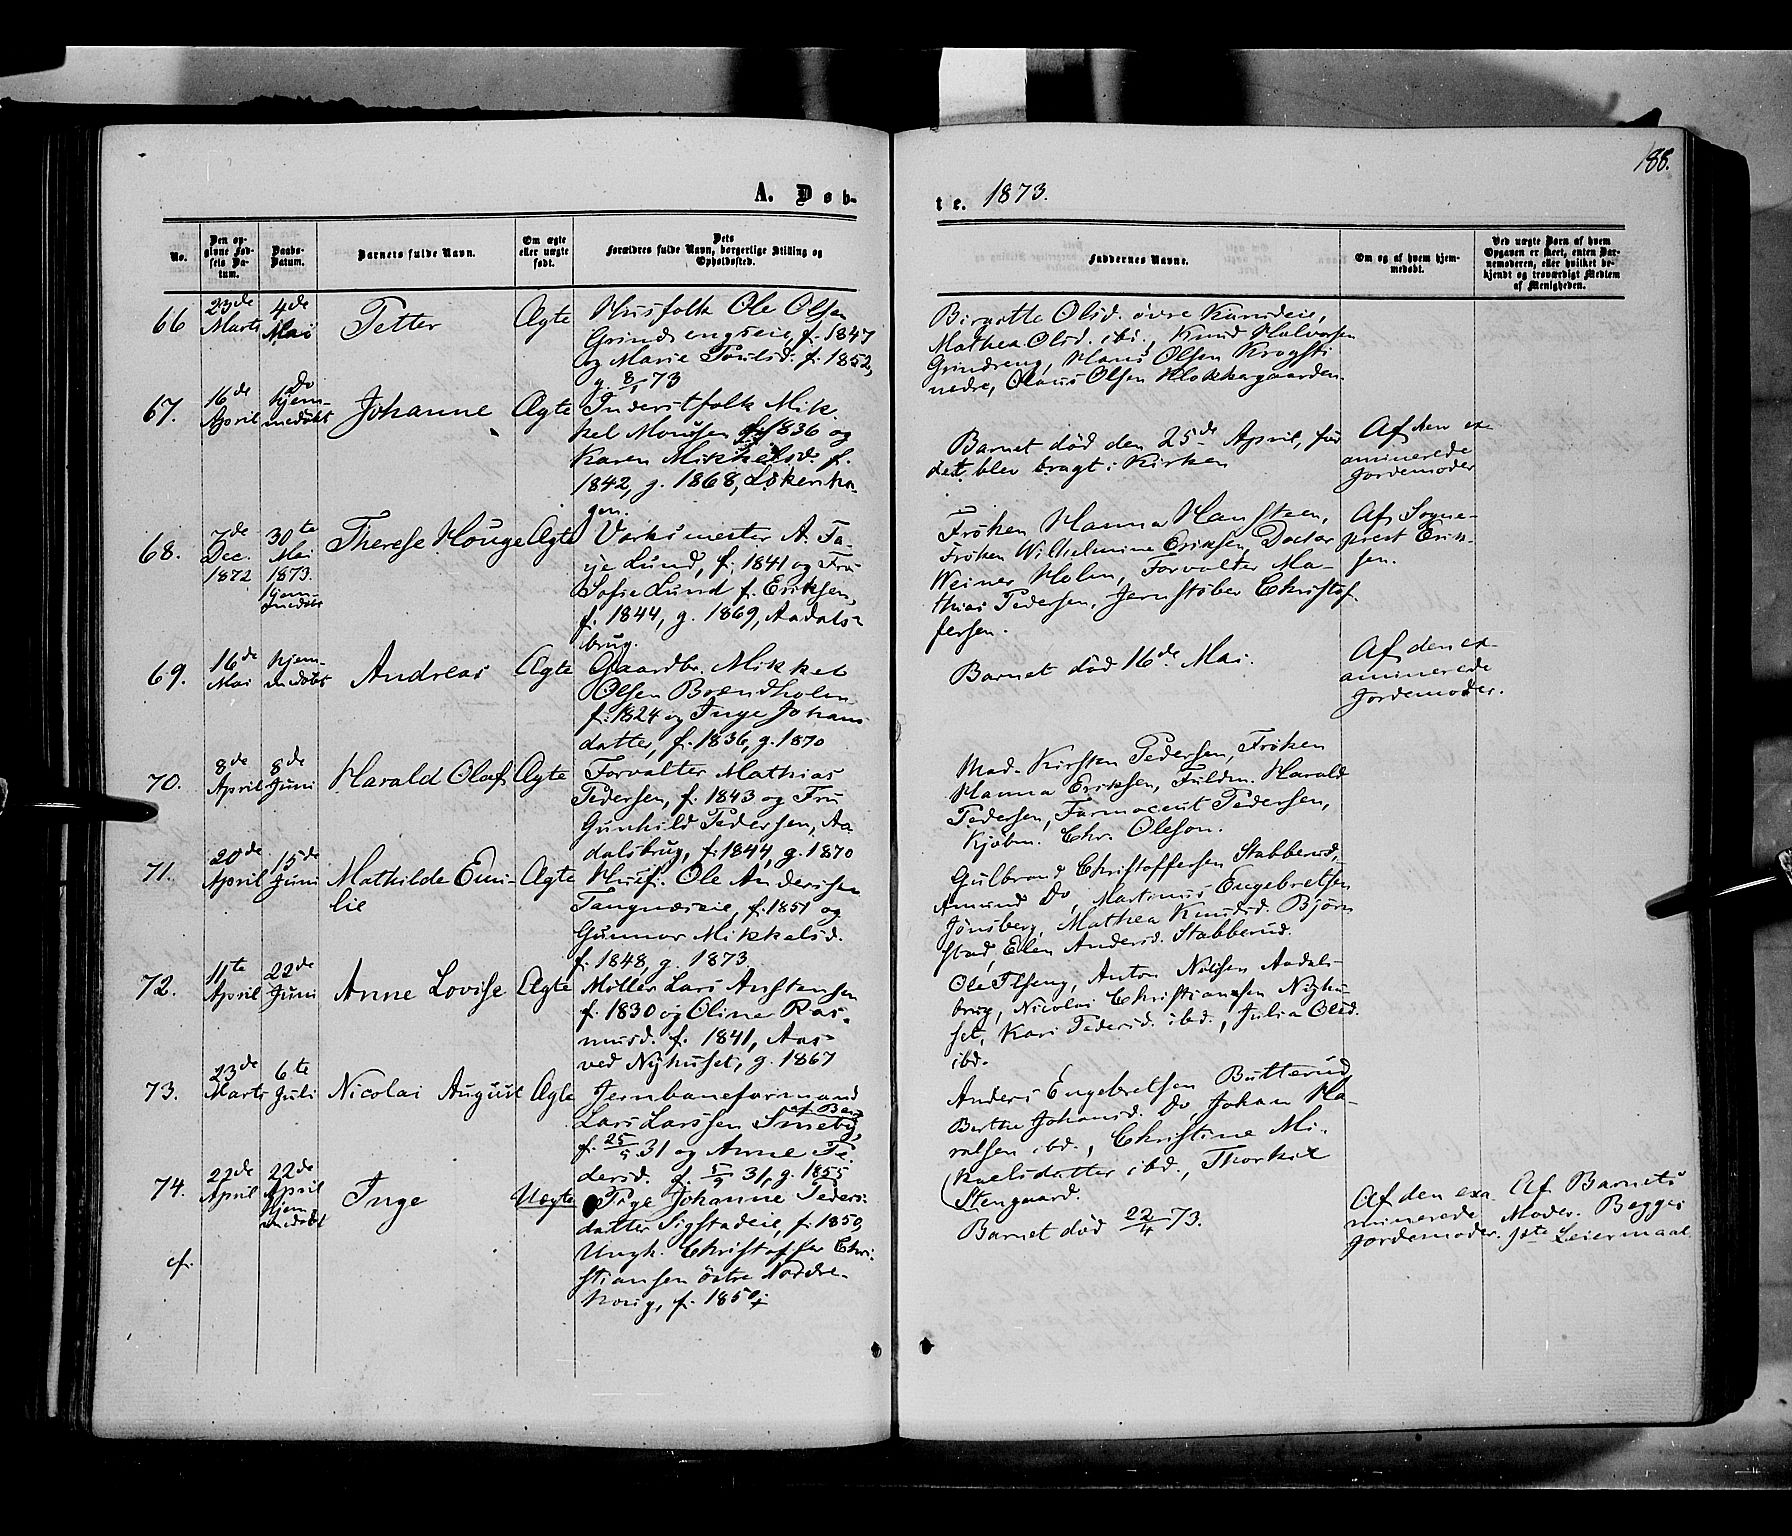 188.
A. Døb-
te. 1873.
No.
Den op-
givne Fød-
sels Da-
tum.
Daabs-
Datum.
Barnets fulde Navn.
Om ægte
eller uægte
født.
Dets
Forældres fulde Navn, borgerlige Stilling og
Opholdssted.
Faddernes Navne.
Om og af hvem hjem-
medøbt.
Ved uægte Børn af hvem
Opgaven er skeet, enten Bar-
nemoderen, eller hvilket be-
kjendt og troværdigt Medlem
af Menigheden.
66
23de
Marts
4de
Mai
Petter
Ægte
Husfolk Ole Olsen
Grindsengseie, f. 1847
og Marie Poulsd. f. 1852,
g. 8/1 73
Birgitte Olsd. övre
Mathea Olsd. ibi., Knud Halvorsen
Grindseng, Hans Olsen Krogsti
nedre, Olaus Olsen Klokkergaarden.
67.
16de
April
Do
hjem-
medøbt
Johanne
Ægte
Inderstfolk Mik-
kel Monsen f. 1836 og
Karen Mikkelsd. f.
1842, g. 1868, Løkenha-
gen.
Barnet död den 25de April, för
det blev bragt i Kirken
Af den ex-
aminerede
Jordemoder
68.
7de
Dec.
1872
30te
Mai
1873.
hjem-
medøbt
Therese Houge
Ægte
Værksmester A. Ta-
je Lund, f. 1841 og Fru
Sofie Lund f. Eriksen,
f. 1844, g. 1869, Aadals-
brug.
Fröken Hanna Hansteen,
Fröken Wilhelmine Eriksen, Doctor
Weiner Holen, Forvalter Ma-
thias Pedersen, Jernstöber Christof-
fersen.
Af Sogne-
prest Erik-
sen.
69.
16de
Mai
hjem-
medøbt
Andreas
Ægte
Gaardbr. Mikkel
Olsen Brændholen
f. 1824 og Inge Johans-
datter, f. 1836, g. 1870
Barnet död 16de Mai.
Af den ex-
aminerede
Jordemoder.
70.
8de
April
8de
Juni
Harald Olaf
Ægte
Forvalter Mathias
Pedersen, f. 1843 og Fru
Gunhild Pedersen, Aa-
dalsbrug, f. 1844, g. 1870
Mad. Kirsten Pedersen, Fröken
Hanna Eriksen, Fuldm. Harald
Pedersen, Farmaceut Pedersen,
Kjöbm. Chr. Oleson.
71.
20de
April
15de
Juni
Mathilde Emi-
lie
Ægte
Husf. Ole Anderssen
Tangnæseie, f. 1851 og
Gunnor Mikkelsd.
f. 1848, g. 1873
Gulbrand Christoffersen Stabberud,
Amund Do, Martinus Engebretsen
Jönsberg, Mathea Knudsd. Björn-
stad, Elen Andersd. Stabberud.
72.
11te
April
22de
Juni
Anne Lovise
Ægte
Møller Lars Anstensen
f. 1830 og Oline Ras-
musd. f. 1841, Aas-
ved Nyhuset, g. 1867
Ole Ilseng, Anton Nilssen Aadals-
brug, Nicolai Christiansen Nyhu-
set, Kari Pedersd. ibd., Julia Olsd.
ibd.
73.
23de
Marts
6te
Juli
Nicolai August
Ægte
Jernbaneformand
Lars Larssen Smeby,
f. 25/5 31 og Anne Pe-
dersd. f. 5/9 31, g. 1855
Anders Engebretsen Butterud,
Berthe Johansd. Do, Johan Ha-
ralsen ibd., Christine Mi-
kaelsdatter ibd., Thorkil
Stengaard.
74.
22de
April
22de
April
hjem-
medøbt
Inge
Uægte
Pige Johanne Peders-
datter Sigstadeie, f. 1850,
Ungk. Christoffer Chri-
stiansen östre Nordre-
houg, f. 1850
Barnet död 22/4 73.
Af den exa-
minerede
Jordemoder.
Af Barnets
Moder. Begges
1ste Leiermaal
cf.